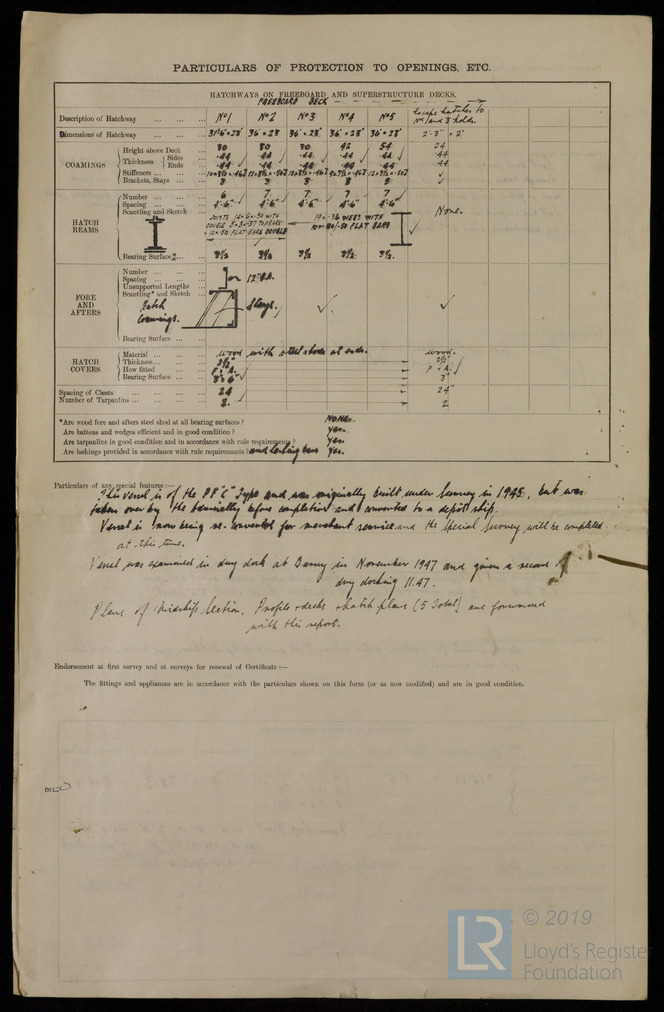 PARTICULARS OF PROTECTION TO OPENINGS, ETC.
HATCHWAYS ON FREEBOARD AND SUPERSTRUCTURE DECKS.
FREEBOARD DECK
Description of Hatchway Nº1 Nº2 Nº3 Nº4 Nº5 Escape hatches to Nº 1 and 3 holds.
Dimensions of Hatchway 36' × 28' 36' × 28' 36' × 28' 36' × 28' 2'·3" × 2'
COAMINGS
Height above Deck 30 30 30 42 54 24
Thickness Sides .44 .44 .44 .44 .44 .44
Ends .44 .44 .44 .44 .44 .44
Stiffeners
Brackets, Stays 3 3 3 3 3
HATCH BEAMS
Number 6 7 7 7 7
Spacing 4'·6" 4'·6" 4'·6" 4'·6" 4'·6"
Scantling and Sketch
None.
WEBS WITH
FLAT BARS
Bearing Surface 3½ 3½ 3½ 3½ 3½.
FORE AND AFTERS
Number
Spacing
Unsupported Lengths
Scantling* and Sketch
Hatch Coamings.
12" B.A.
Stays.
Bearing Surface
HATCH COVERS
Material wood with steel shods at ends. wood.
Thickness 2½" 2½"
How fitted F + A. F + A.
Bearing Surface 3" 3"
Spacing of Cleats 24 24"
Number of Tarpaulins 2. 2
*Are wood fore and afters steel shod at all bearing surfaces? NONE.
Are battens and wedges efficient and in good condition? yes.
Are tarpaulins in good condition and in accordance with rule requirements? Yes.
Are lashings provided in accordance with rule requirements? and locking bars Yes.
Particulars of any special features:—
This vessel is of the PF"C" Type and was originally built under Survey in 1945, but was
taken over by the Admiralty before completion and converted to a depot ship.
Vessel is now being re-converted for merchant service and the Special Survey will be completed
at this time.
Vessel was examined in dry dock at Barry in November 1947 and given a record of
dry docking 11.47.
Plans of Midship Section, Profile & decks & hatch plans (5 Total) are forwarded
with this report.
Endorsement at first survey and at surveys for renewal of Certificate:—
The fittings and appliances are in accordance with the particulars shown on this form (or as now modified) and are in good condition.
LR © 2019
Lloyd's Register
Foundation